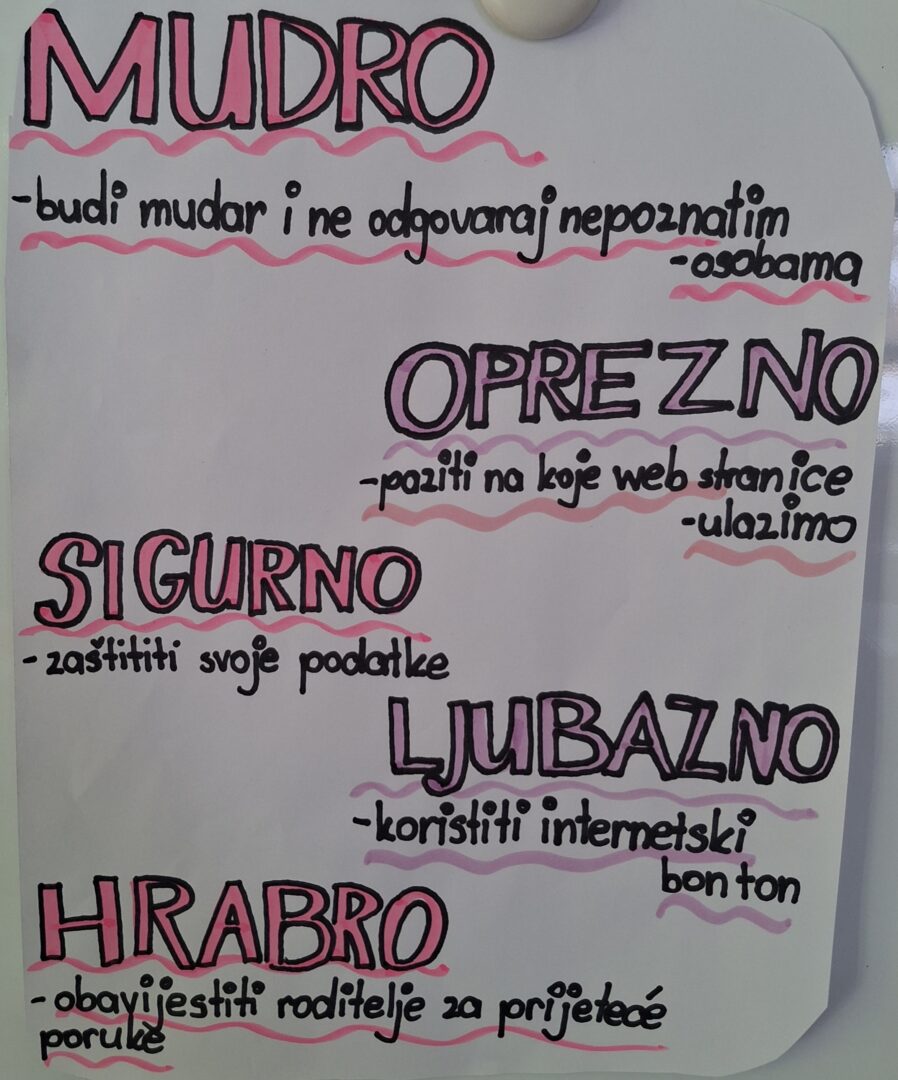 MUDRO
-budi mudar i ne odgovaraj nepoznatim
-osobama
OPREZNO
-paziti na koje web stranice
-ulazimo
SIGURNO
-zaštititi svoje podatke
LJUBAZNO
-koristiti internetski
bon ton
HRABRO
-obavijestiti roditelje za prijeteće
poruke